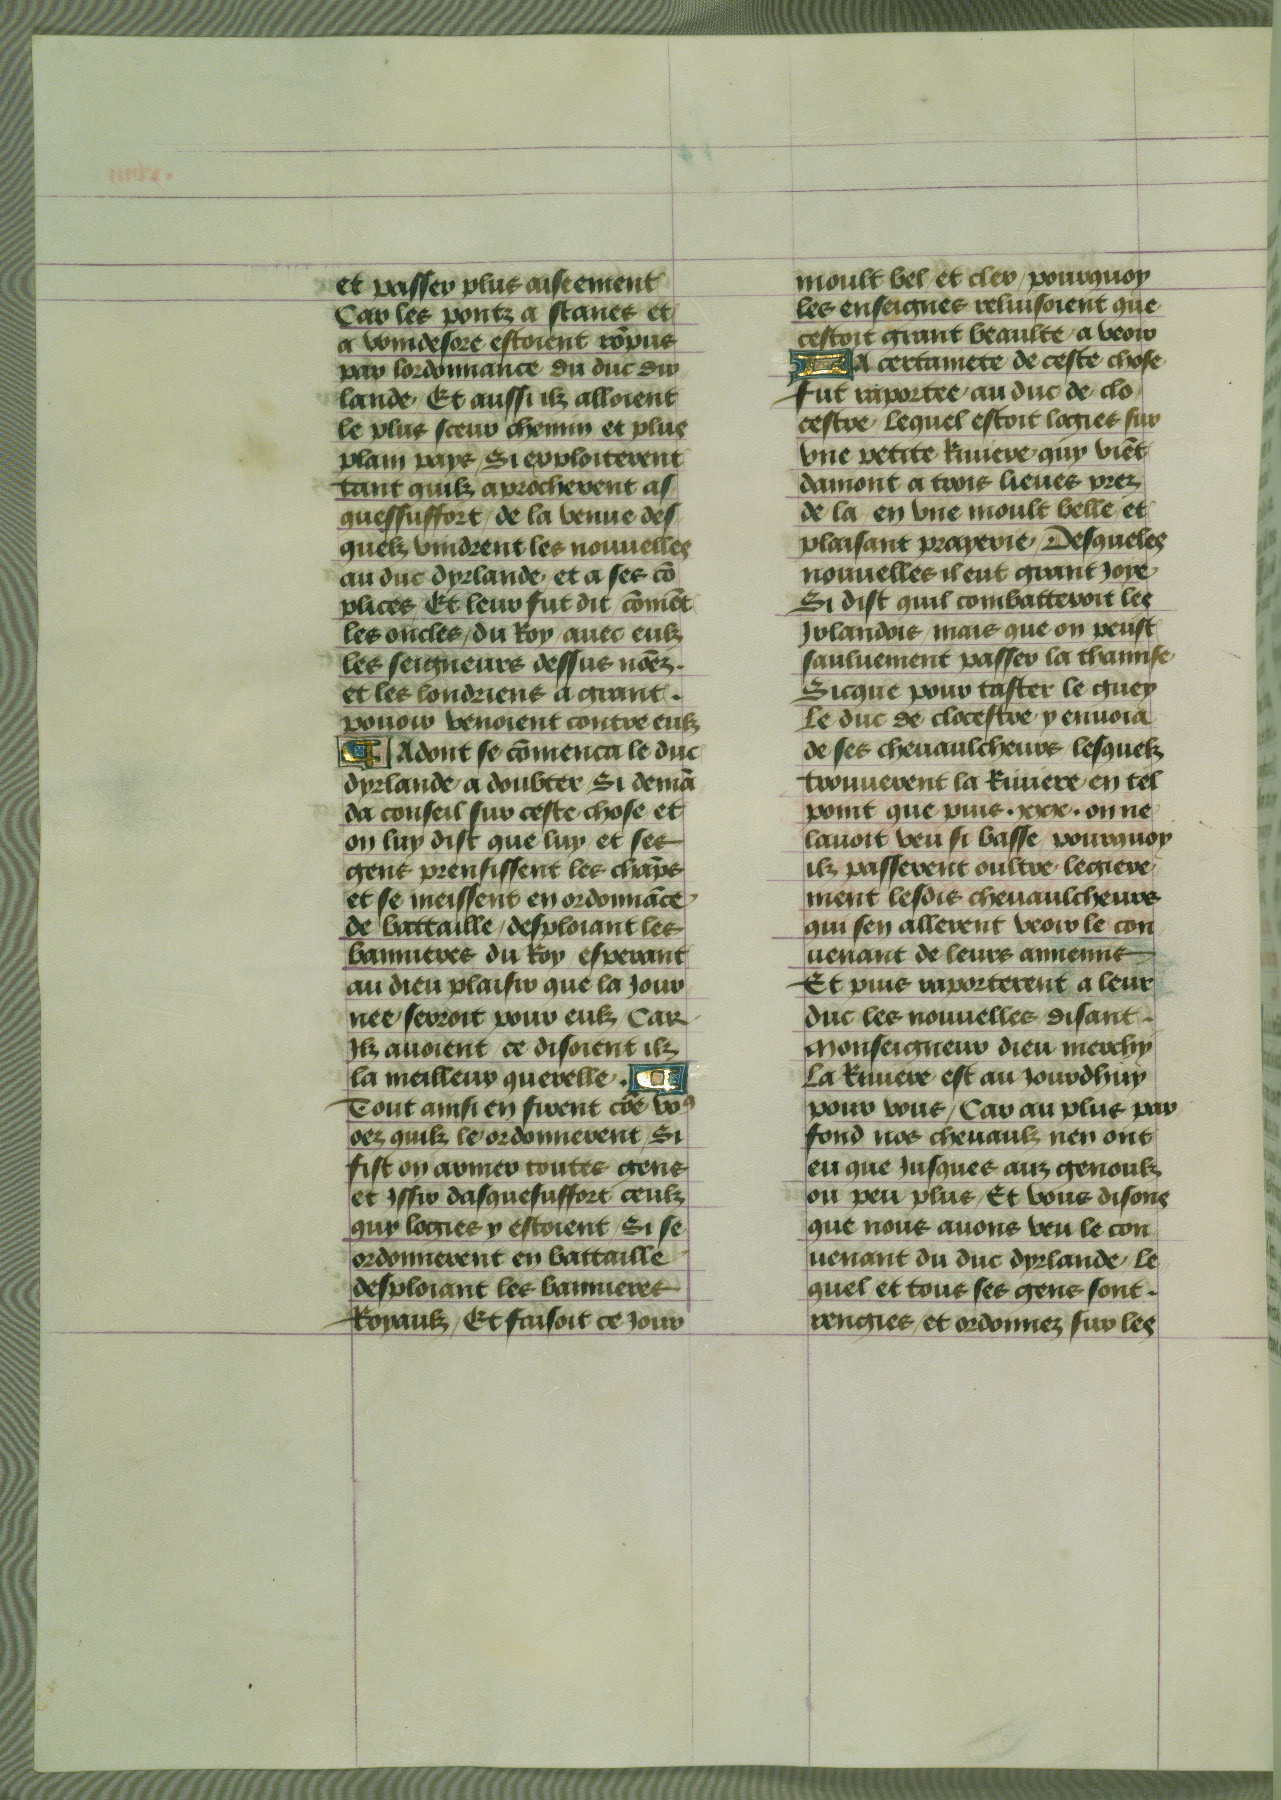 et passer plus aiseement
Car les pontz a stanes et
a windesore estoient rōpus
par lordonnance du duc dir
lande / Et aussi ilz alloient
le plus sceur chemin et plus
plain pays / Si exploiterent
tant quilz aprocherent as
quessuffort / de la venue des
quelz vindrent les nouvelles
au duc dyrlande / et a ses cō
plices Et leur fut dit cōmēt
les oncles / du Roy / avec eulz
les seigneurs dessus nōez .
et les londriens a grant .
pouoir venoient contre eulz
Adont se cōmenca le duc
dyrlande / a doubter / Si demā
da conseil sur ceste chose et
on luy dist que luy et ses
gens prensissent les chāps
et se meissent en ordonnāce
de battaille / desploiant les
bannieres du Roy / esperant
au dieu plaisir que la Jour
nee / serroit pour eulz Car
Ilz auoient ce disoient ilz
la meilleur querelle .
Tout ainsi en firent cōe voꝰ
oez quilz le ordonnerent / Si
fist on armer toutes gens
et Issir dasquesuffort ceulz
quy logies y estoient / Si se
ordonnerent en battaille
desploiant les bannieres
Royaulz / Et faisoit ce Jour
moult bel et cler / pourquoy
les enseignes reluisoient que
cestoit grant beaulte / a veoir
A certainete de ceste chose
fut raportee / au duc de clo
cestre / Lequel estoit logies sur
vne petite Riuiere quy viēt
damont a trois lieues prez
de la / en vne moult belle et
plaisant prayerie / Desqueles
nouuelles il eut grant Joye
Si dist quil combatteroit les
Irlandois / mais que on peust
sauluement passer la thamise
Sicque pour taster le guey
Le duc de clocestre y enuoia
de ses cheuaulcheurs lesquelz
trouuerent la Riuiere en tel
point que puis . xxx . on ne
lauoit veu si basse / pourquoy
ilz passerent oultre legiere
ment lesdis cheuaulcheurs
qui sen allerent veoir le con
uenant de leurs annemis
Et puis raporterent a leur
duc les nouuelles disant .
Monseigneur dieu merchy
La Riuiere est au Jourdhuy
pour vous / Car au plus par
fond nos cheuaulz nen ont
eu que Jusques auz genoulz
ou peu plus / Et vous disons
que nous auons veu le con
uenant du duc dyrlande / le
quel et tous ses gens sont .
rengies / et ordonnez sur les